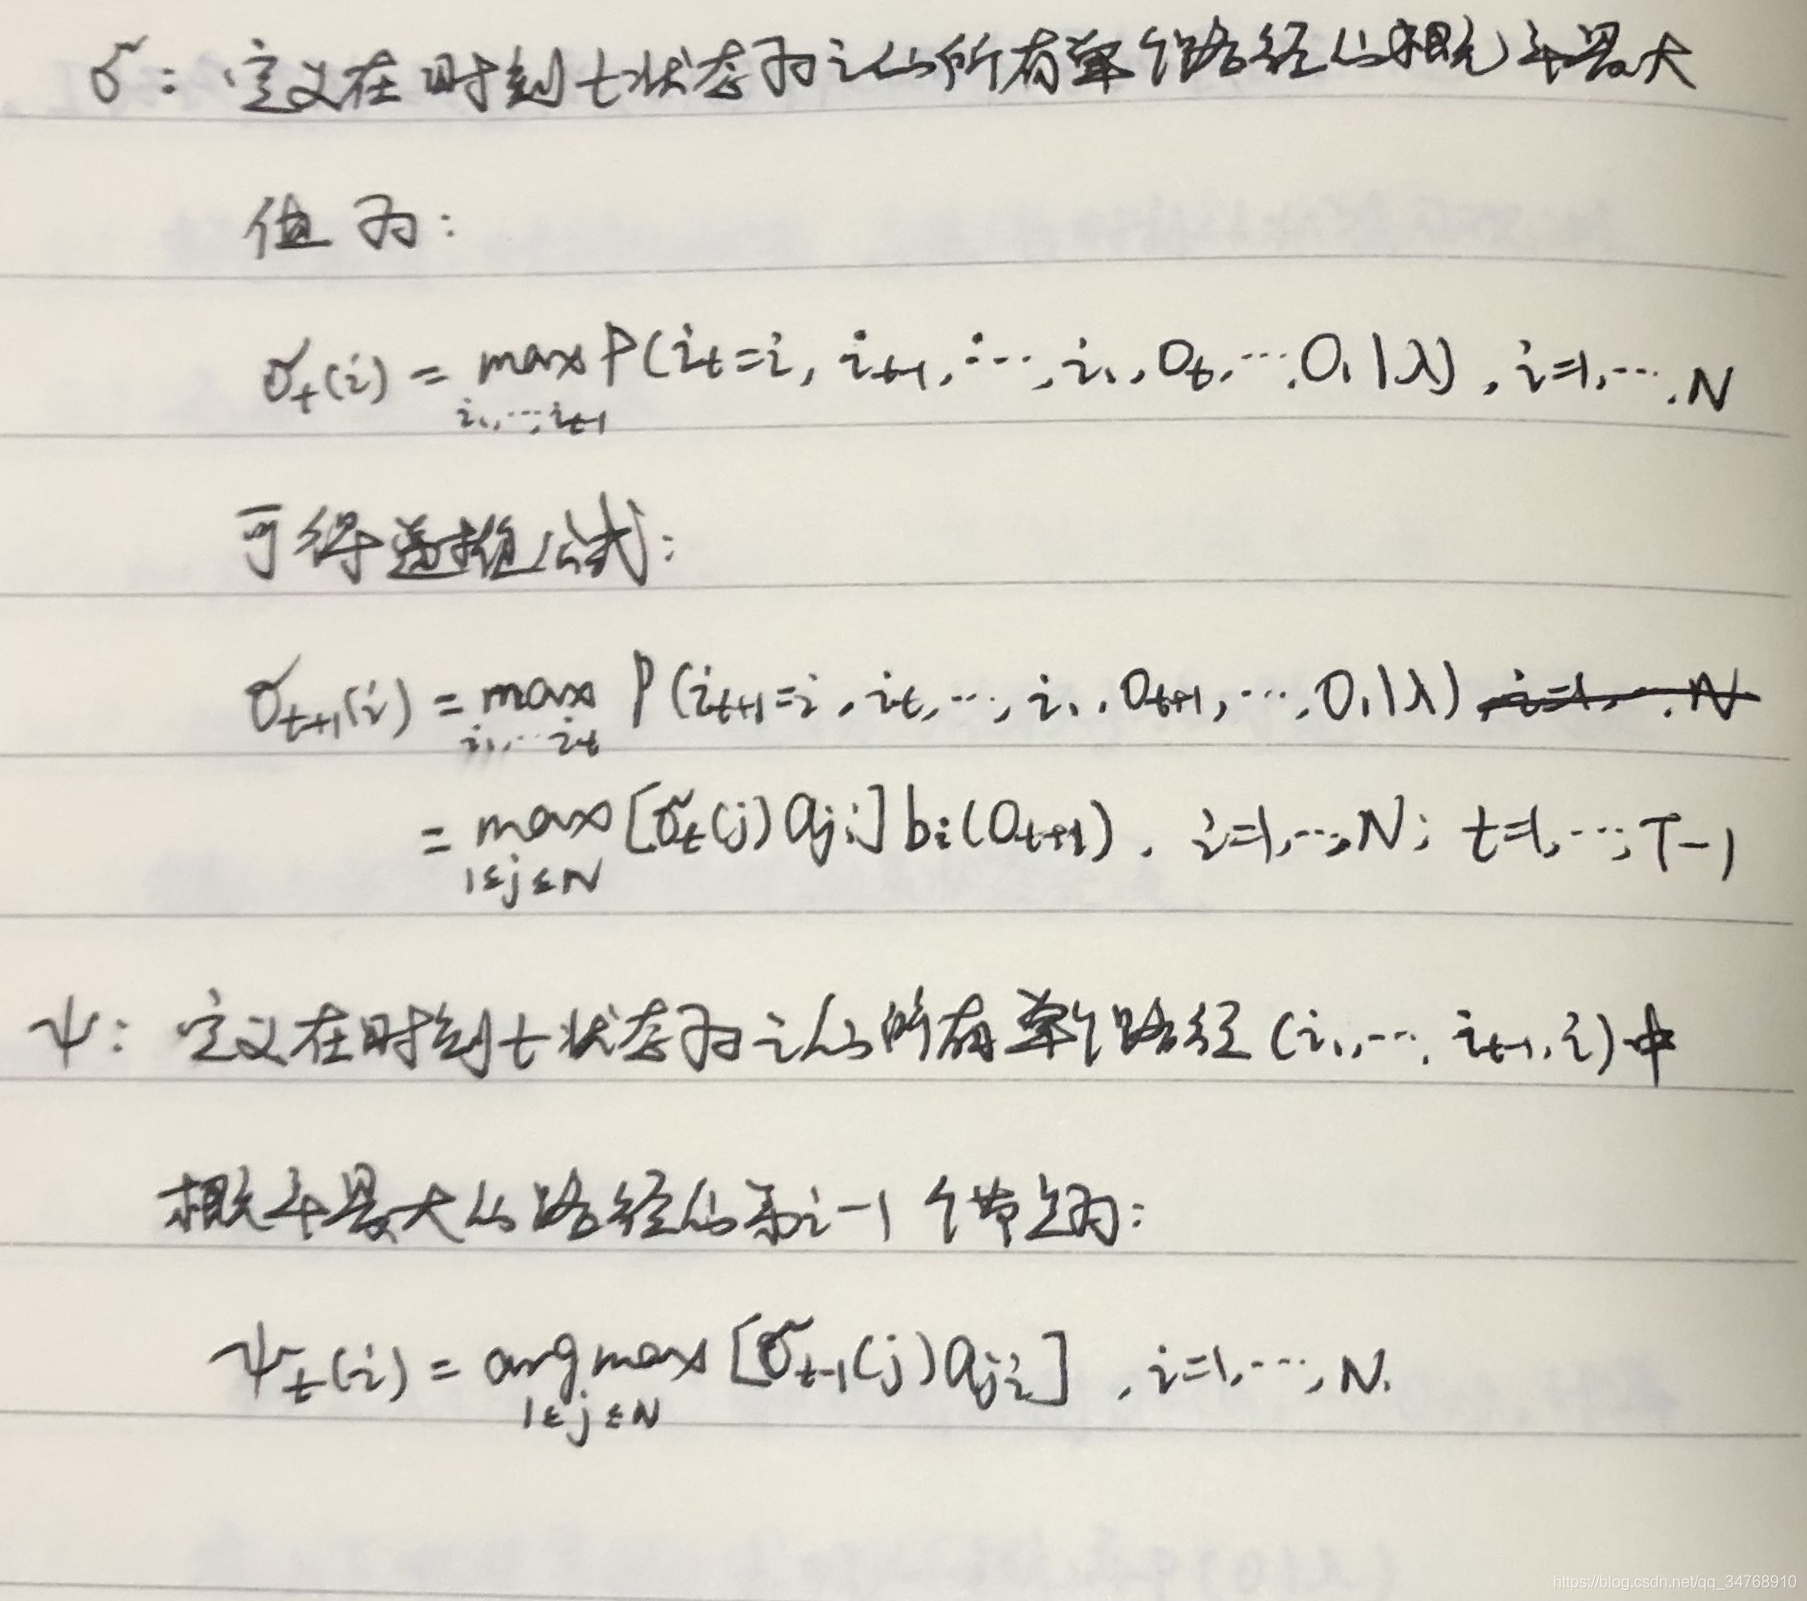 δ：定义在时刻t状态为i的所有单个路径的概率最大
值为：
δ_t(i) = max_{i_1,…,i_{t-1}} P(i_t=i, i_{t-1}, …, i_1, O_t, …, O_1|λ), i=1,…,N
可得递推公式：
δ_{t+1}(i) = max_{i_1,…,i_t} P(i_{t+1}=i, i_t, …, i_1, O_{t+1}, …, O_1|λ) ~~, i=1,…,N~~
= max_{1≤j≤N} [δ_t(j)a_{ji}] b_i(O_{t+1}), i=1,…,N; t=1,…,T-1
ψ：定义在时刻t状态为i的所有单个路径(i_1,…,i_{t-1},i)中
概率最大的路径的第i-1个节点为：
ψ_t(i) = arg max_{1≤j≤N} [δ_{t-1}(j)a_{ji}], i=1,…,N.
https://blog.csdn.net/qq_34768910